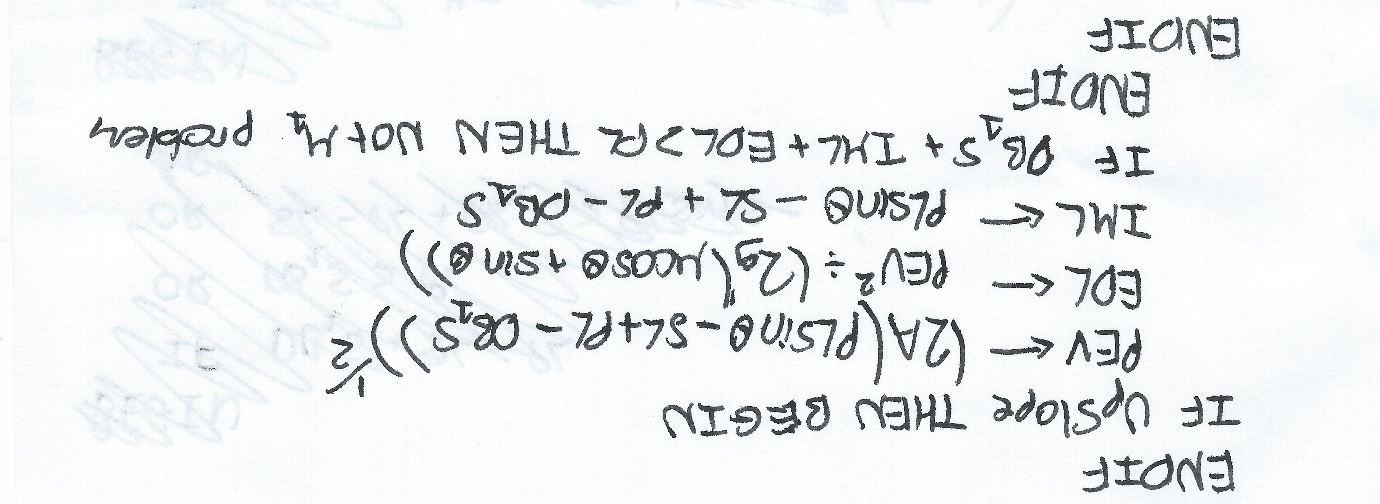 ENDIF
IF Upslope THEN BEGIN
PEV ← (2A(PLsinθ - SL + PL - OB₁S))^½
EDL ← PEV² ÷ (2g(μcosθ + sinθ))
IML ← PLsinθ - SL + PL - OB₁S
IF OB₁S + IML + EDL > RL THEN NOT M₁ problem
ENDIF
ENDIF